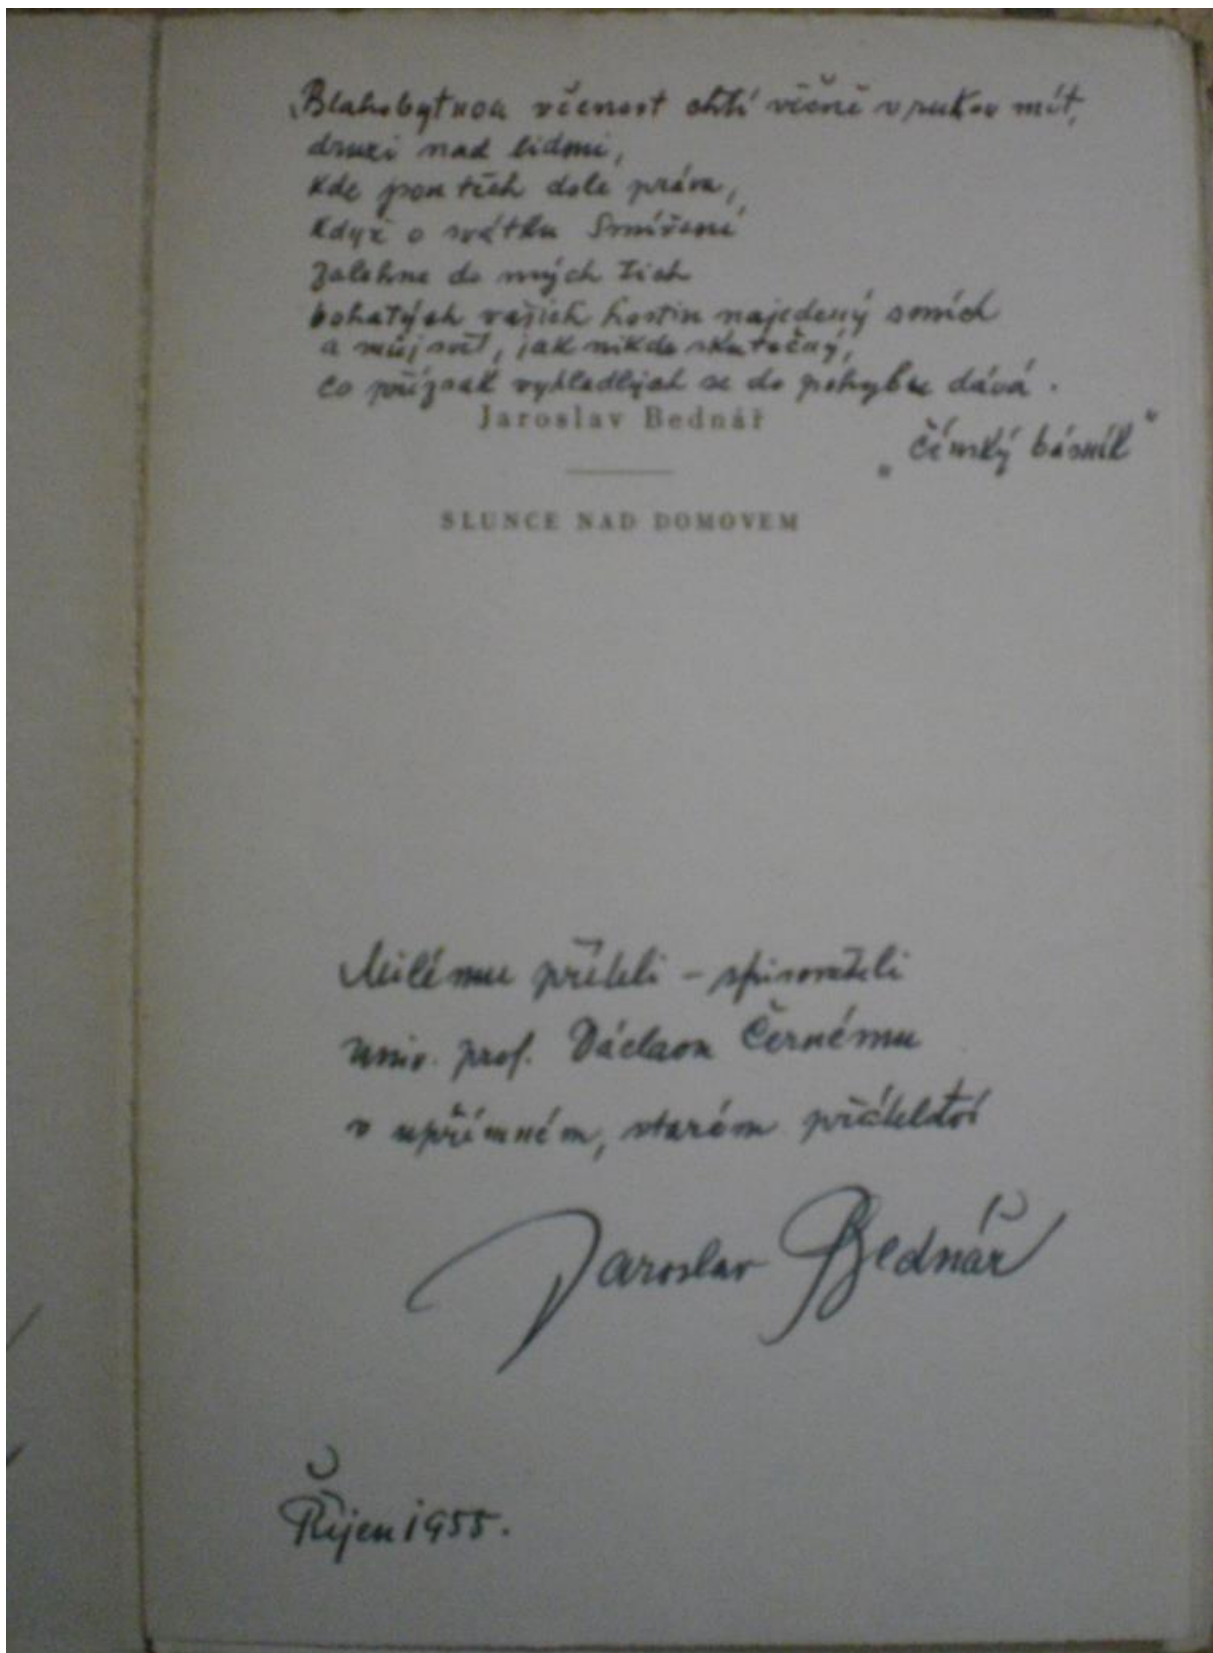 Blahobytnou věčnost chtí věčně v rukou mít,
druzí nad lidmi,
kde jsou těch dole práva,
když o svátku Smíření
zalehne do mých tich
bohatých vašich hostin najedený smích
a můj svět, jak nikdo skutečný,
co přízrak vyhladlých se do pohybu dává.
Jaroslav Bednář
„Čínský básník"
SLUNCE NAD DOMOVEM
Milému příteli – spisovateli
univ. prof. Václavu Černému
v upřímném, starém přátelství
Jaroslav Bednář
Říjen 1955.